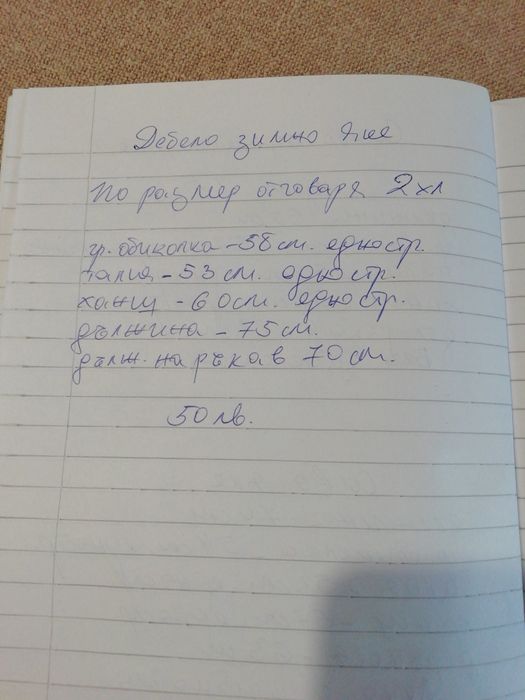 Дебело зимно яке
По размер отговаря 2хл
гр. обиколка - 58 см. едностр.
талия - 53 см. едностр.
ханш - 60 см. едностр.
дължина - 75 см.
дълж. на ръкав 70 см.
50 лв.